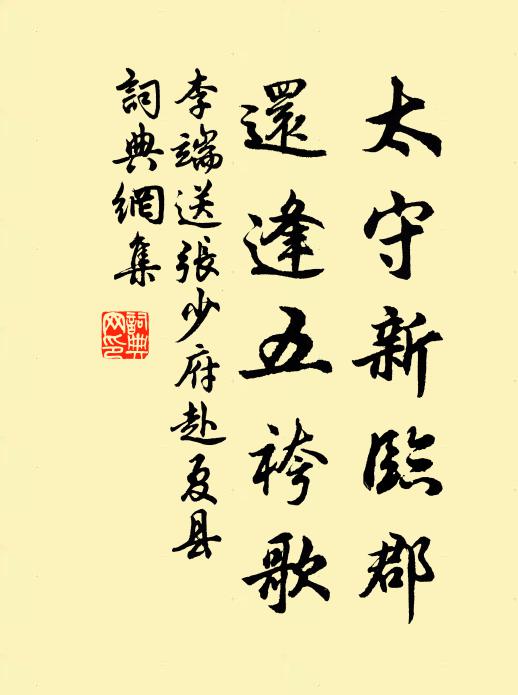 太守新臨郡
還逢五袴歌
李端送张少府赴夏县
詞典網集
詞典網印